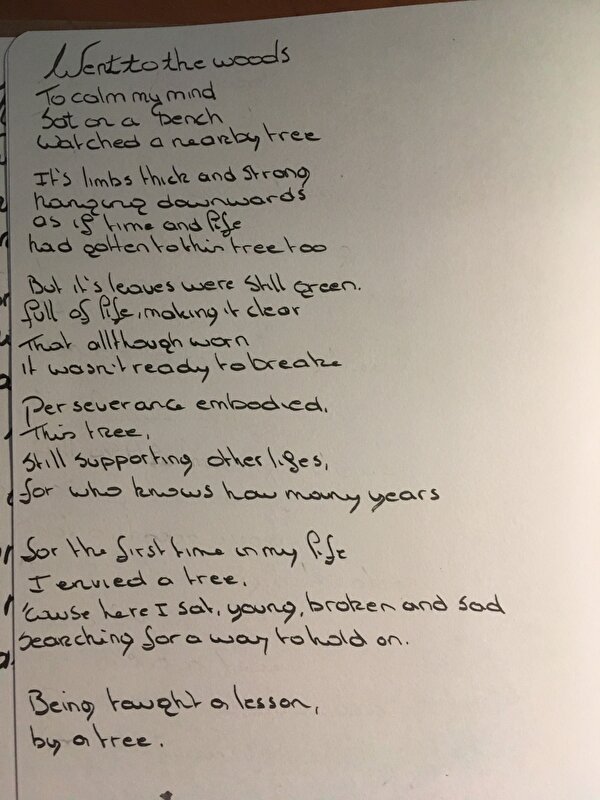 Went to the woods
To calm my mind
Sat on a bench
Watched a nearby tree
It's limbs thick and strong
hanging downwards
as if time and life
had gotten to this tree too
But it's leaves were still green.
full of life, making it clear
That allthough worn
it wasn't ready to breake
Perseverance embodied.
This tree,
Still supporting other lifes,
for who knows how many years
for the first time in my life
I envied a tree.
'cause here I sat, young, broken and sad
searching for a way to hold on.
Being tought a lesson,
by a tree.